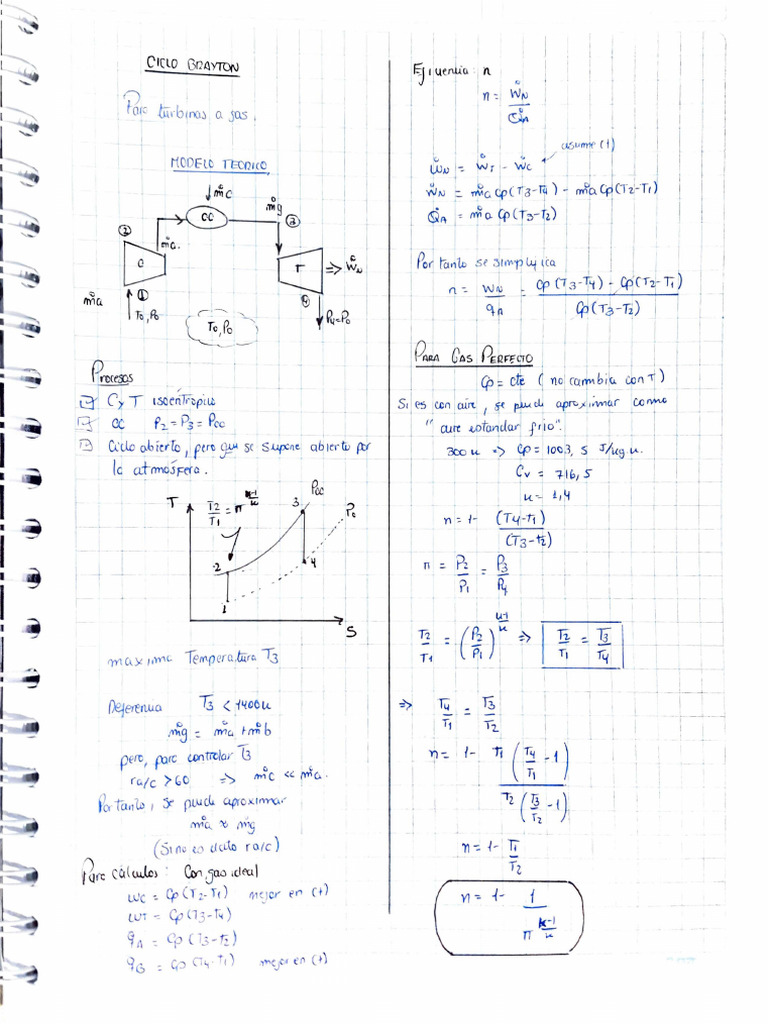 CICLO BRAYTON
Para turbinas a gas.
MODELO TEORICO
ṁc
ṁg
② CC ③
ṁa.
C T ⇒ ẆN
① ④
ṁa
To, Po To, Po P4=Po
Procesos
C y T isoéntropico
CC P2 = P3 = Pcc
Ciclo abierto, pero que se supone abierto por
la atmósfera.
T T2/T1 = π^(k-1/k) 3 Pcc Po
2 4
1
S
maxima Temperatura T3
Deferencia T3 < 1400K
ṁg = ṁa + ṁb
pero, para controlar T3
ra/c > 60 => ṁc << ṁa.
Por tanto, se puede aproximar
ṁa ≈ ṁg
(Si no es dato ra/c)
Para cálculos: Con gas ideal
wc = Cp(T2-T1) mejor en (+)
wT = Cp(T3-T4)
qA = Cp(T3-T2)
qB = Cp(T4-T1) mejor en (+)
Eficiencia: n
n = ẆN/Q̇A
asume (+)
ẆN = ẆT - Ẇc
ẆN = ṁa Cp(T3-T4) - ṁa Cp(T2-T1)
Q̇A = ṁa Cp(T3-T2)
Por tanto se simplifica
n = WN/qA = Cp(T3-T4) - Cp(T2-T1)/Cp(T3-T2)
PARA GAS PERFECTO
Cp = cte (no cambia con T)
Si es con aire, se puede aproximar como
"aire estandar frio".
300K => Cp = 1003,5 J/kg.K.
Cv = 716,5
K = 1,4
n = 1- (T4-T1)/(T3-T2)
π = P2/P1 = P3/P4
T2/T1 = (P2/P1)^(k-1/k) => T2/T1 = T3/T4
=> T4/T1 = T3/T2
n = 1- T1(T4/T1 -1)/T2(T3/T2 -1)
n = 1- T1/T2
n = 1- 1/π^(k-1/k)